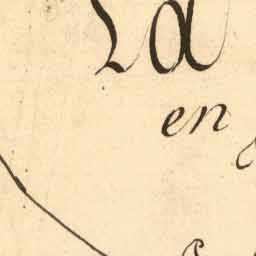 La
en